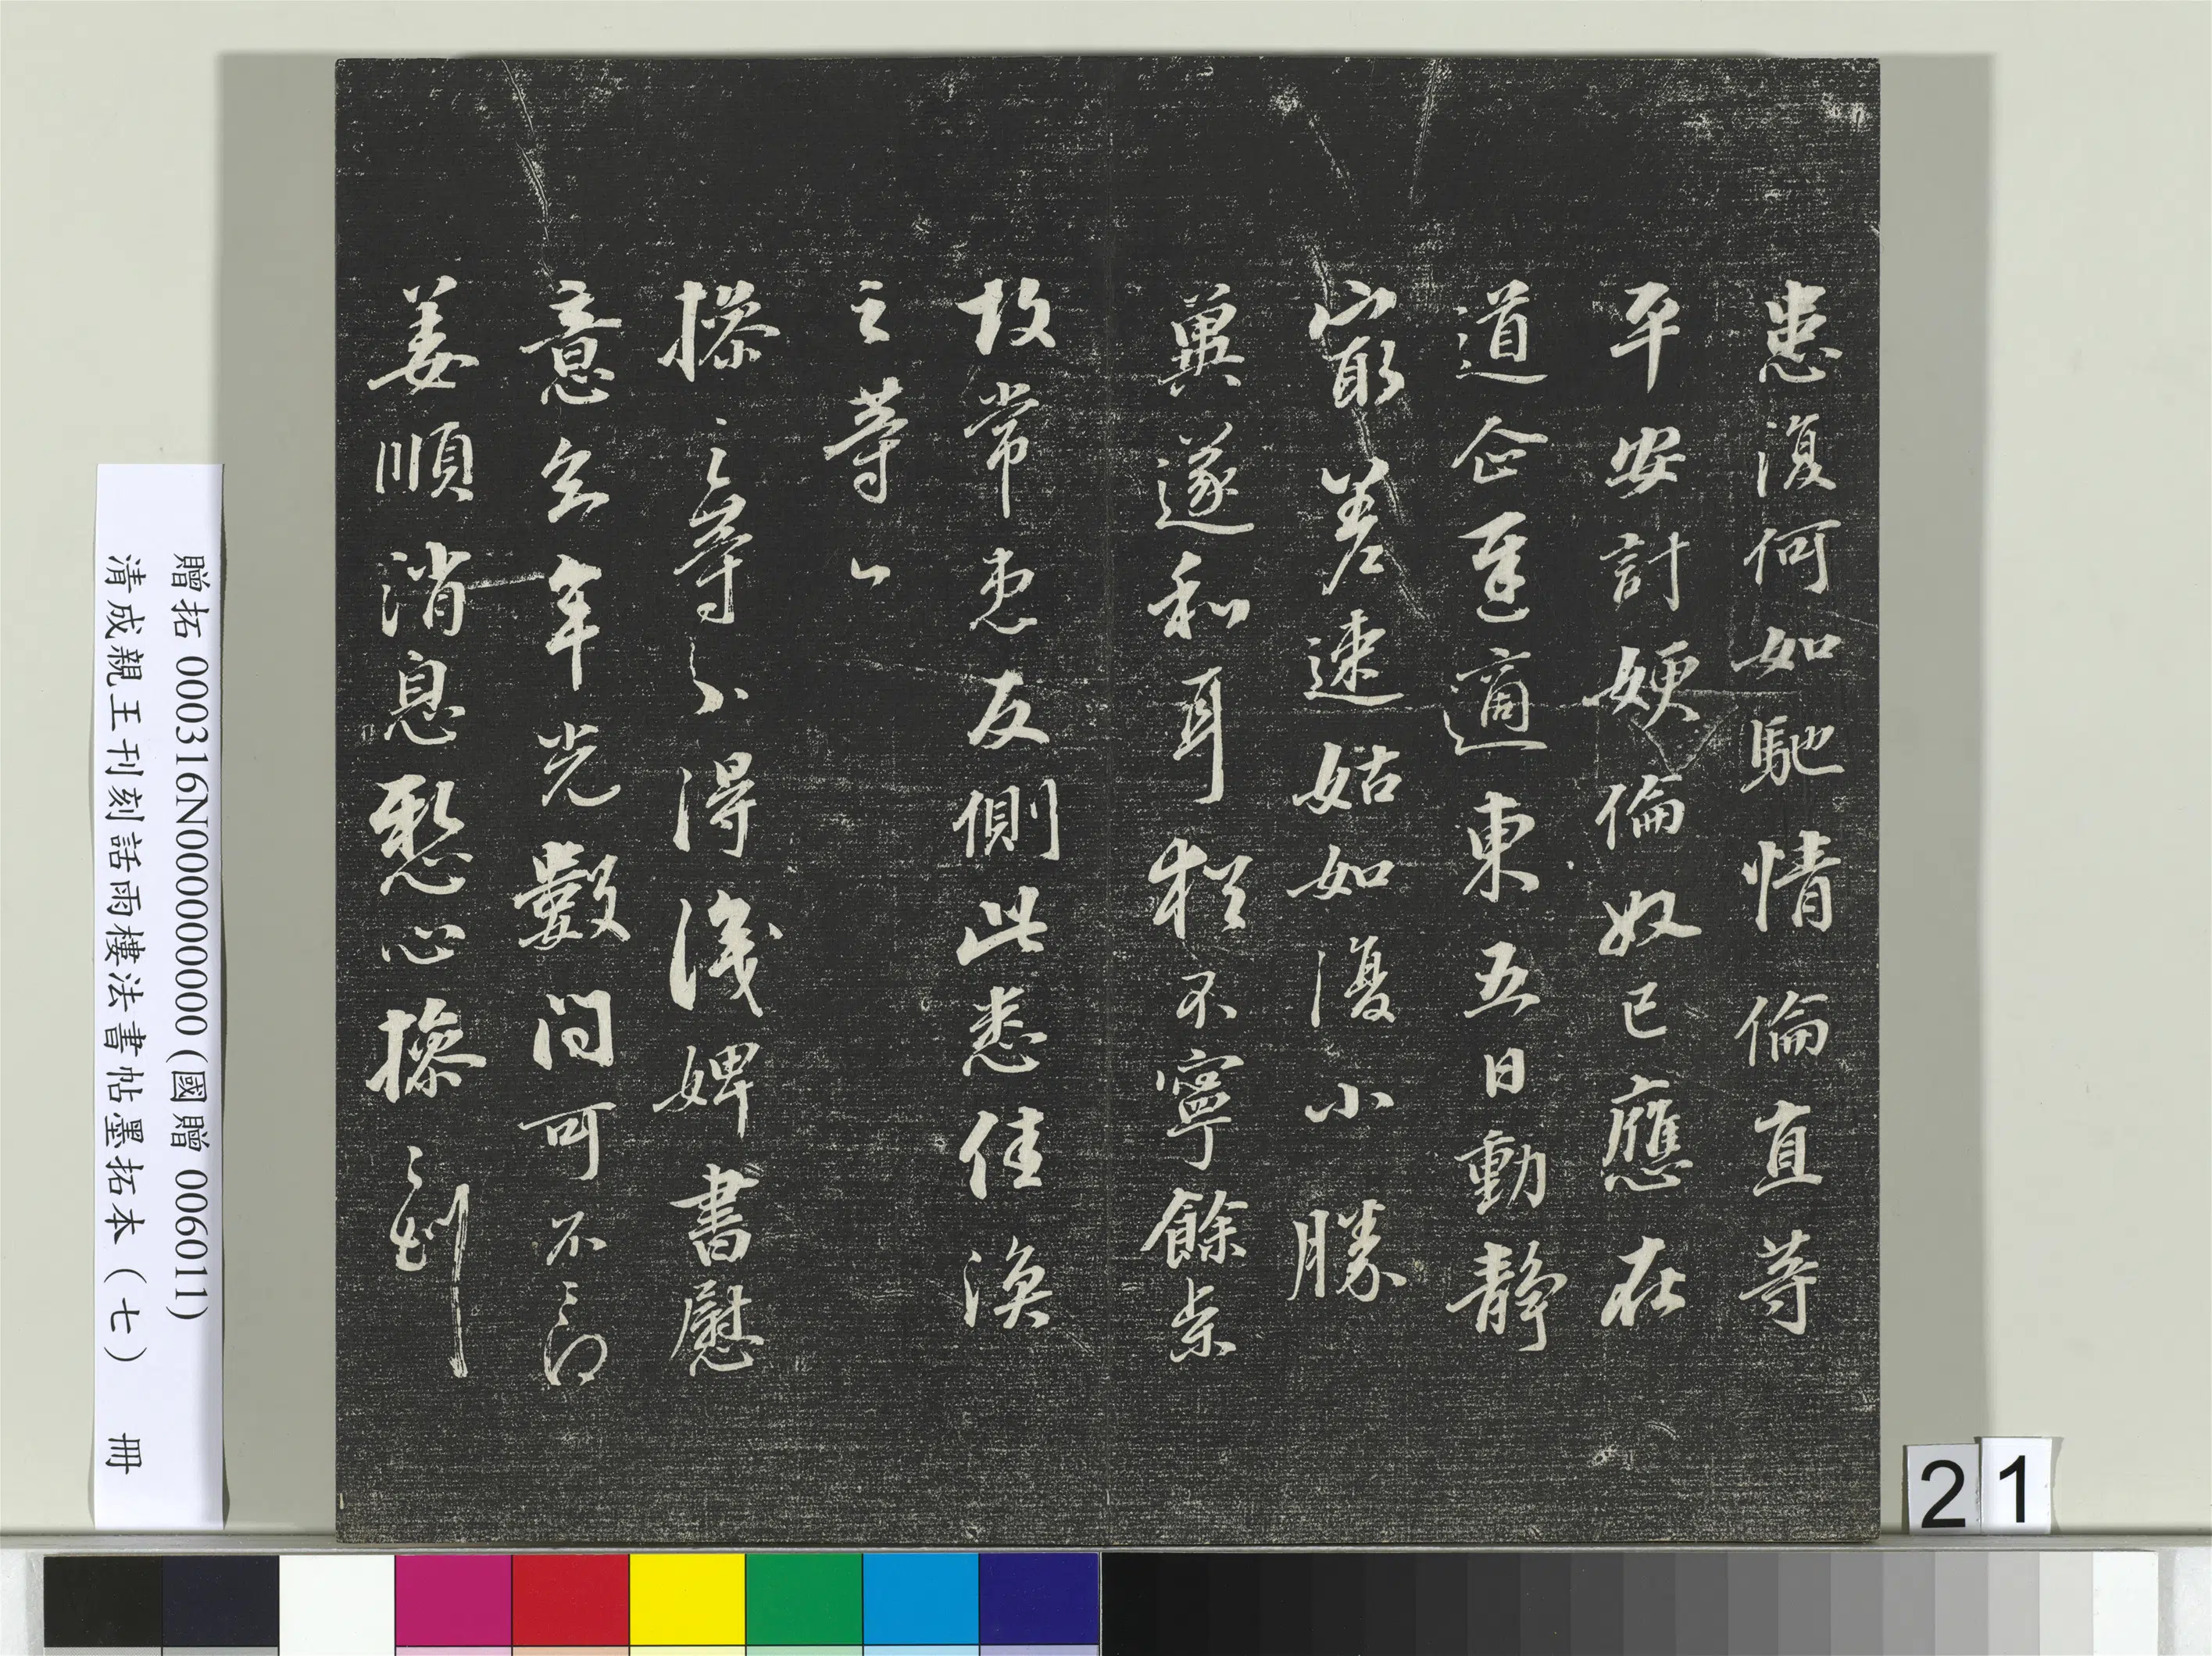 患復何如馳情倫直等
平安計嫂倫奴已應在
道企遲適東五日動靜
最差速姑如復小勝
冀遂和耳極不寧餘亦
故常患反側此悉佳渙
之等
操之等不得識婢書慰
意玄年光數問可不
姜順消息懸心操之
贈拓 000316N000000000 (國贈 006011)
清成親王刊刻話雨樓法書帖墨拓本(七) 冊
21